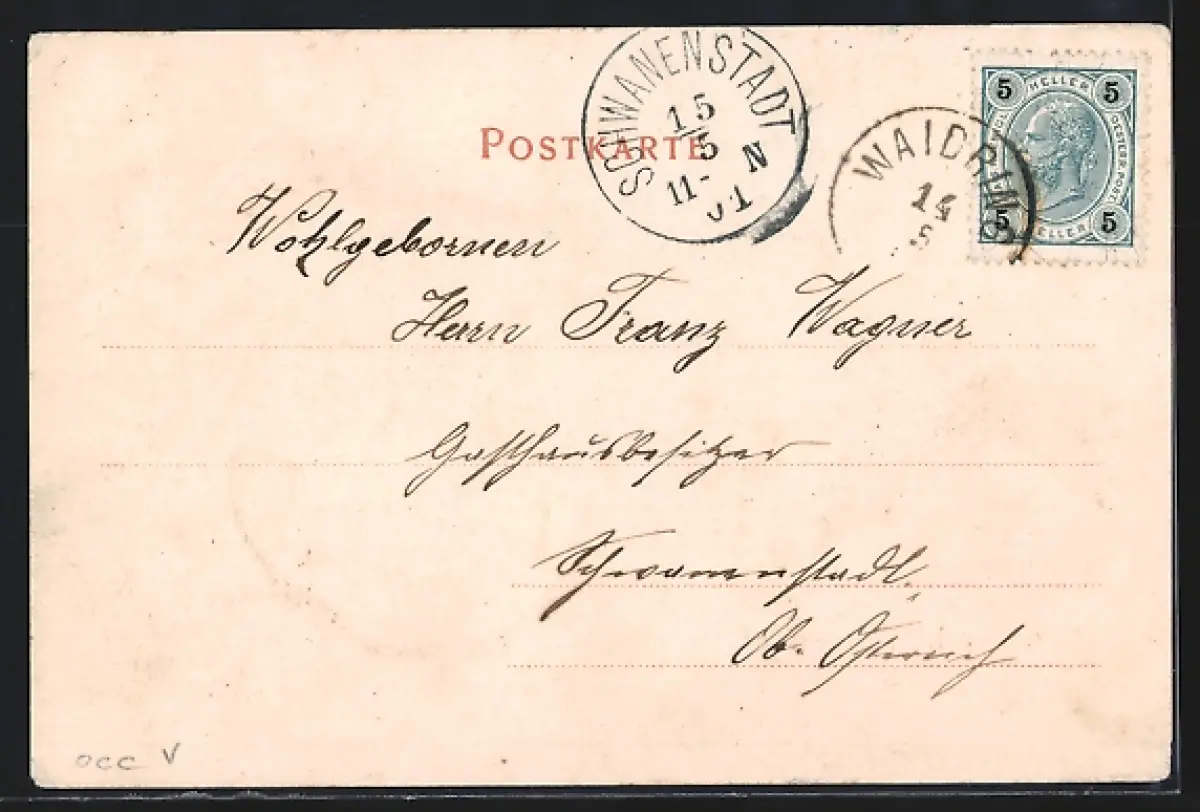 POSTKARTE
SCHWANENSTADT
15
5
11- N
01
WAIDRING
14
5 HELLER 5
OESTERR. POST
5 HELLER 5
Wohlgebornen
Herrn Franz Wagner
Gasthausbesitzer
Schwanenstadt
Ob. Österreich
occ V